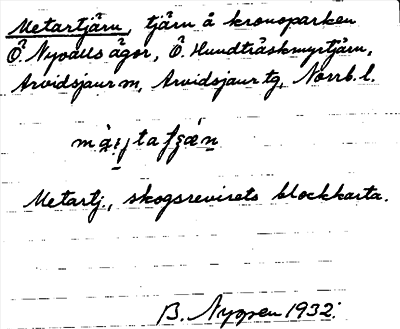 Metartjärn, tjärn å kronoparken
Ö. Nyvalls ägor, Ö. Hundträskmyrtjärn,
Arvidsjaur m, Arvidsjaur tg, Norrb. l.
Metartj., skogsrevirets blockkarta.
B. Nygren 1932.